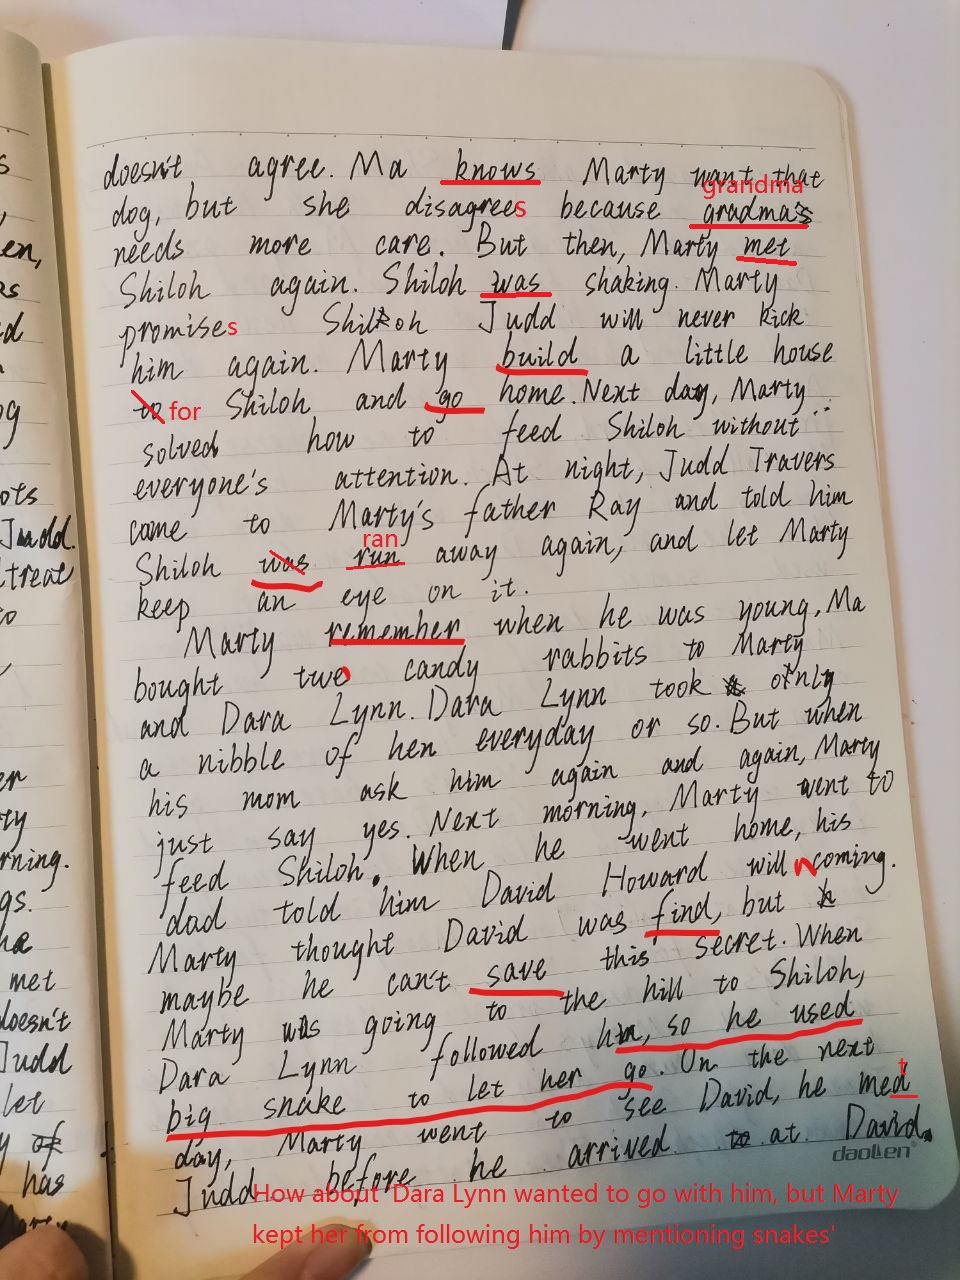 s
len,
as
ed
og
ots
Judd.
treat
to
er
ty
rning.
gs.
ha
met
doesn't
Judd
let
y of
has
doesn't agree. Ma knows Marty want that
grandma
dog, but she disagrees because gradma's
needs more care. But then, Marty met
Shiloh again. Shiloh was shaking. Marty
promises Shiloh Judd will never kick
him again. Marty build a little house
to for Shiloh and go home. Next day, Marty
solved how to feed Shiloh without
everyone's attention. At night, Judd Travers
come to Marty's father Ray and told him
ran
Shiloh was run away again, and let Marty
keep an eye on it.
Marty remember when he was young, Ma
bought two candy rabbits to Marty
and Dara Lynn. Dara Lynn took only
a nibble of hen everyday or so. But when
his mom ask him again and again, Marty
just say yes. Next morning, Marty went to
feed Shiloh. When he went home, his
dad told him David Howard will coming.
Marty thought David was find, but
maybe he can't save this secret. When
Marty was going to the hill to Shiloh,
Dara Lynn followed him, so he used
big snake to let her go. On the next
t
day, Marty went to see David, he med
Judd before he arrived to at David.
daolen
How about 'Dara Lynn wanted to go with him, but Marty
kept her from following him by mentioning snakes'